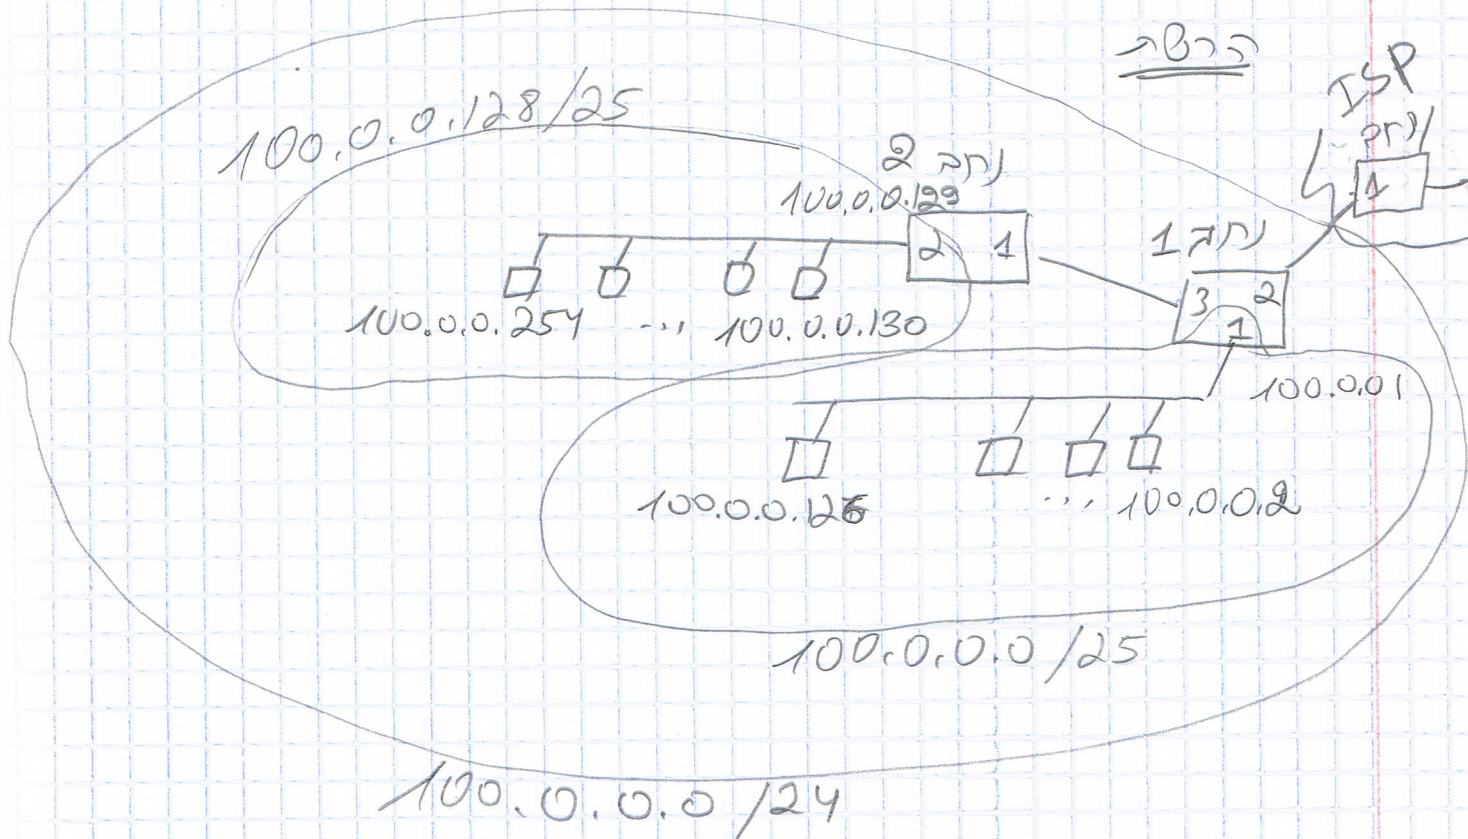 הרשת
ISP
נתב
1
100.0.0.128/25
נתב 2
100.0.0.129
2 1
נתב 1
3 2
1
100.0.0.254 ... 100.0.0.130
100.0.01
100.0.0.126 ... 100.0.0.2
100.0.0.0/25
100.0.0.0/24